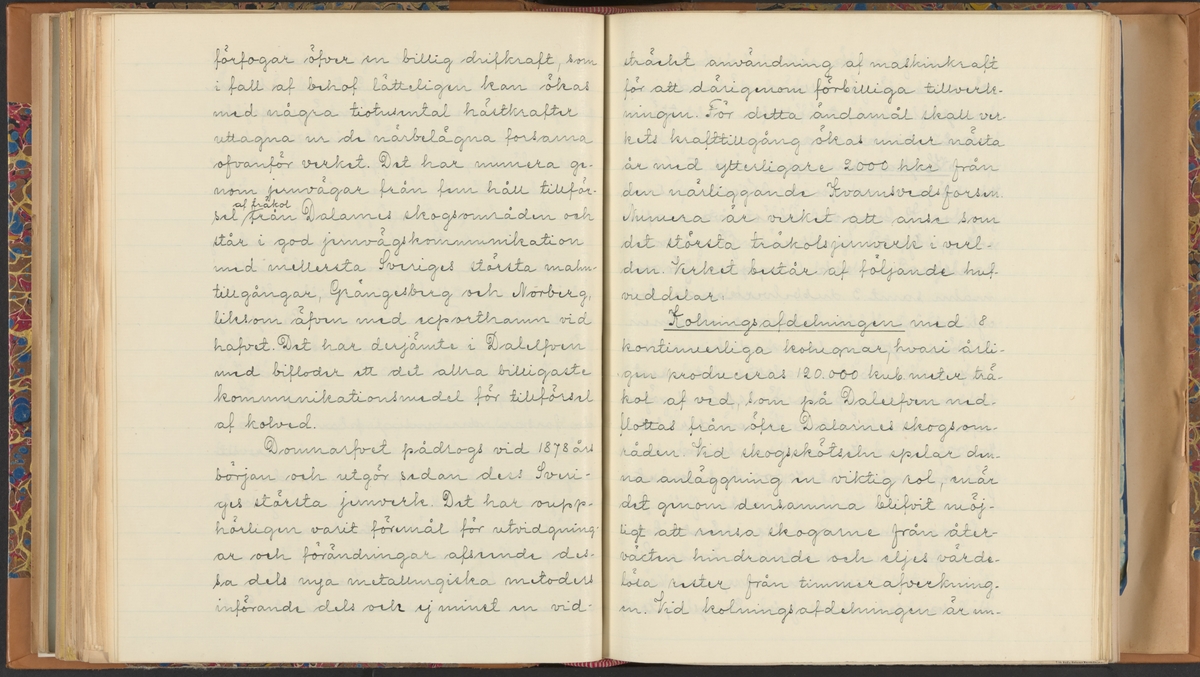 förfogar öfver en billig drifkraft, som
i fall af behof lätteligen kan ökas
med några tiotusental hästkrafter
uttagna ur de närbelägna forsarna
ofvanför verket. Det har numera ge-
nom jernvägar från fem håll tillför-
af träkol
sel från Dalarnes skogsområden och
står i god jernvägskommunikation
med mellersta Sveriges största malm-
tillgångar, Grängesberg och Norberg,
liksom äfven med exporthamn vid
hafvet. Det har derjämte i Dalelfven
med bifloder ett det allra billigaste
kommunikationsmedel för tillförsel
af kolved.
Domnarfvet pådrogs vid 1878 års
början och utgör sedan dess Sveri-
ges största jernverk. Det har oupp-
hörligen varit föremål för utvidgning-
ar och förändringar afseende des-
sa dels nya metallurgiska metoders
införande dels och ej minst en vid-
sträckt användning af maskinkraft
för att därigenom förbilliga tillverk-
ningen. För detta ändamål skall ver-
kets krafttillgång ökas under nästa
år med ytterligare 2000 hkr från
den närliggande Kvarnsvedsforsen.
Numera är verket att anse som
det största träkolsjernverk i verl-
den. Verket består af följande huf-
vuddelar.
Kolningsafdelningen med 8
kontinuerliga kolugnar, hvari årli-
gen produceras 120.000 kub.meter trä-
kol af ved, som på Dalelfven ned-
flottas från öfre Dalarnes skogsom-
råden. Vid skogsskötseln spelar den-
na anläggning en viktig rol, när
det genom densamma blifvit möj-
ligt att rensa skogarne från åter-
växten hindrande och eljes värde-
lösa rester från timmerafverkning-
en. Vid kolningsafdelningen är un-